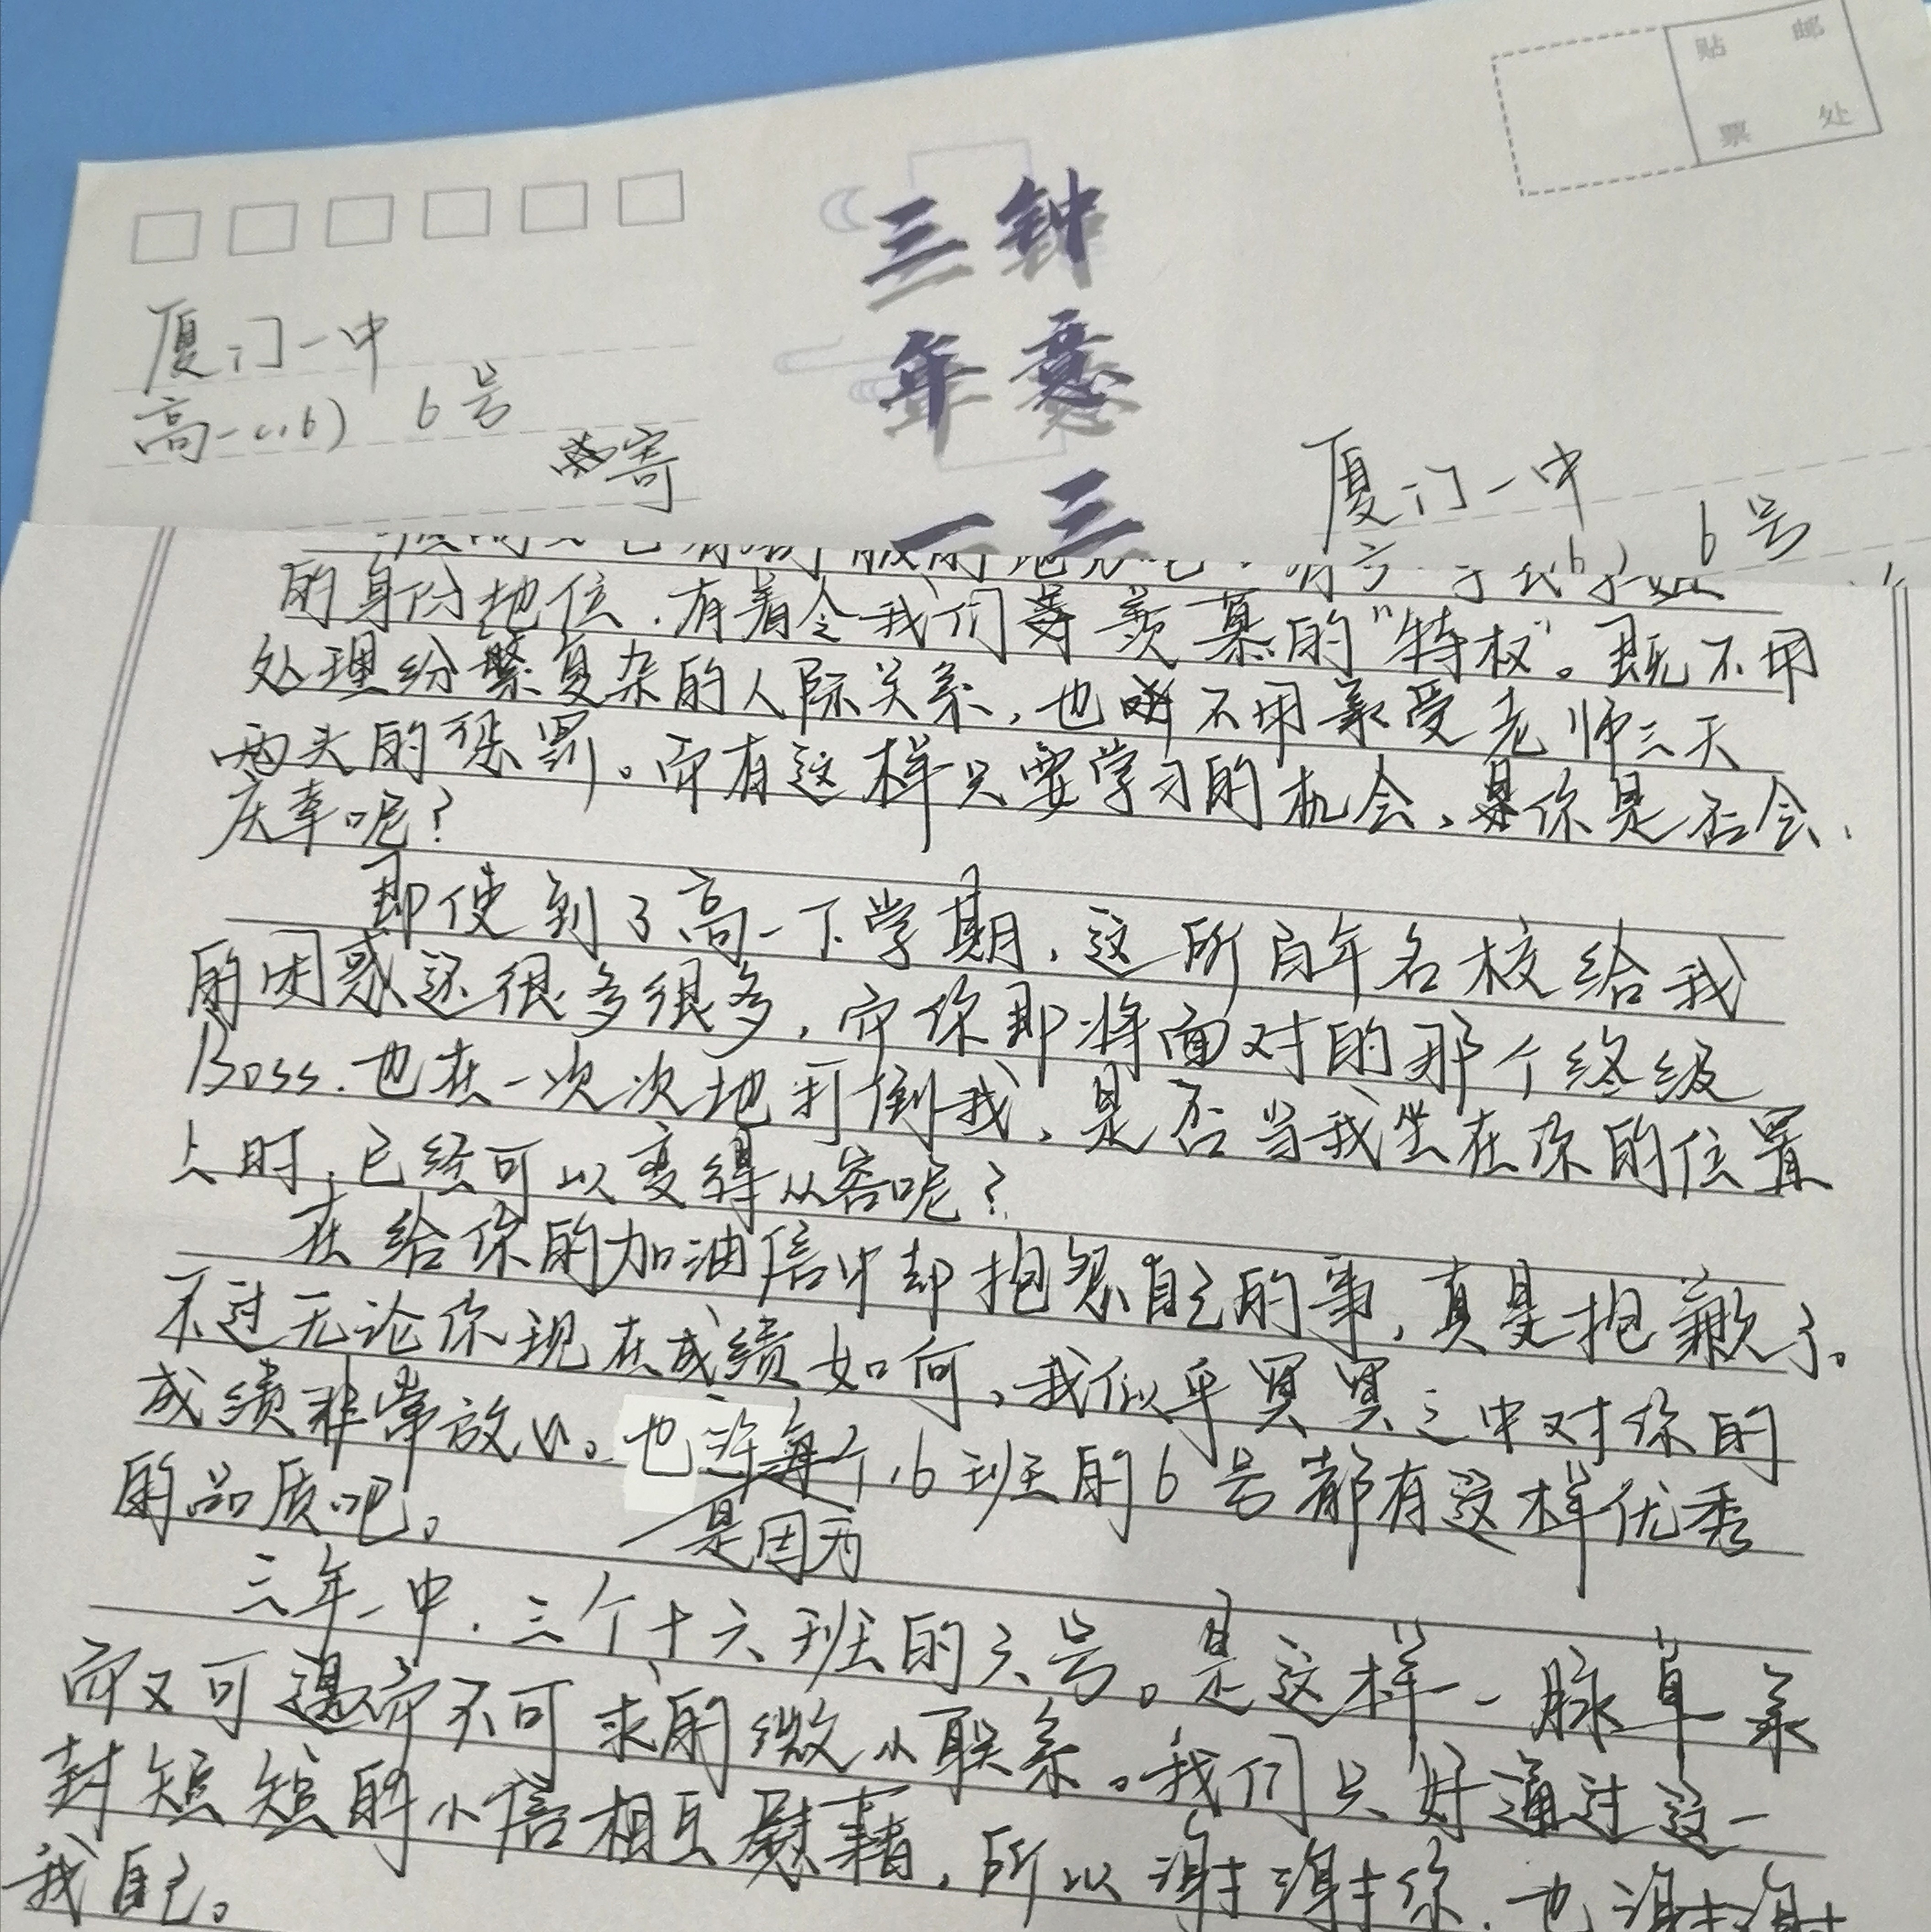 贴 邮
票 处
钟意三
三年一
厦门一中
高一(16) 6号
寄
厦门一中
6号
的身份地位,有着令我们羡慕的“特权”。既不用
处理纷繁复杂的人际关系,也不用承受老师三天
两头的惩罚。而有这样只要学习的机会,你是否会
庆幸呢?
即使到了高一下学期,这所百年名校给我
的困惑还很多很多,而你即将面对的那个终级
Boss.也在一次次地打倒我,是否当我坐在你的位置
上时,已经可以变得从容呢?
在给你的加油信中却抱怨自己的事,真是抱歉了。
不过无论你现在成绩如何,我似乎冥冥之中对你的
成绩非常放心。也许每个16班的6号都有这样优秀
是因为
的品质吧。
三年一中,三个十六班的六号。是这样一脉单系
而又可遇而不可求的微小联系。我们只好通过这一
封短短的小信相互慰藉,所以谢谢你,也谢谢
我自己。